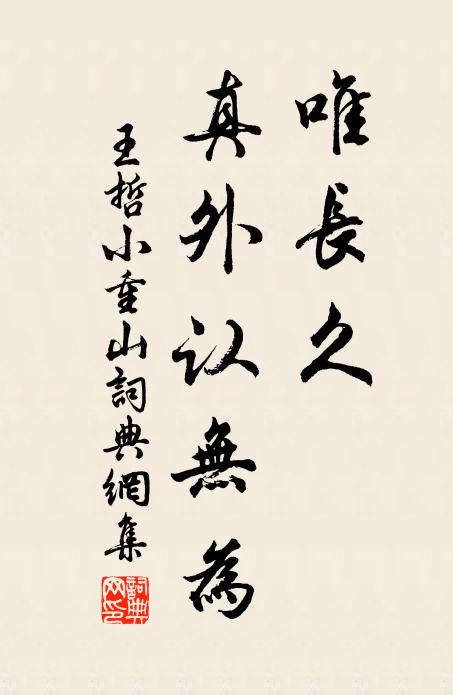 唯長久
真外认無為
王哲小重山詞典網集
詞典网印